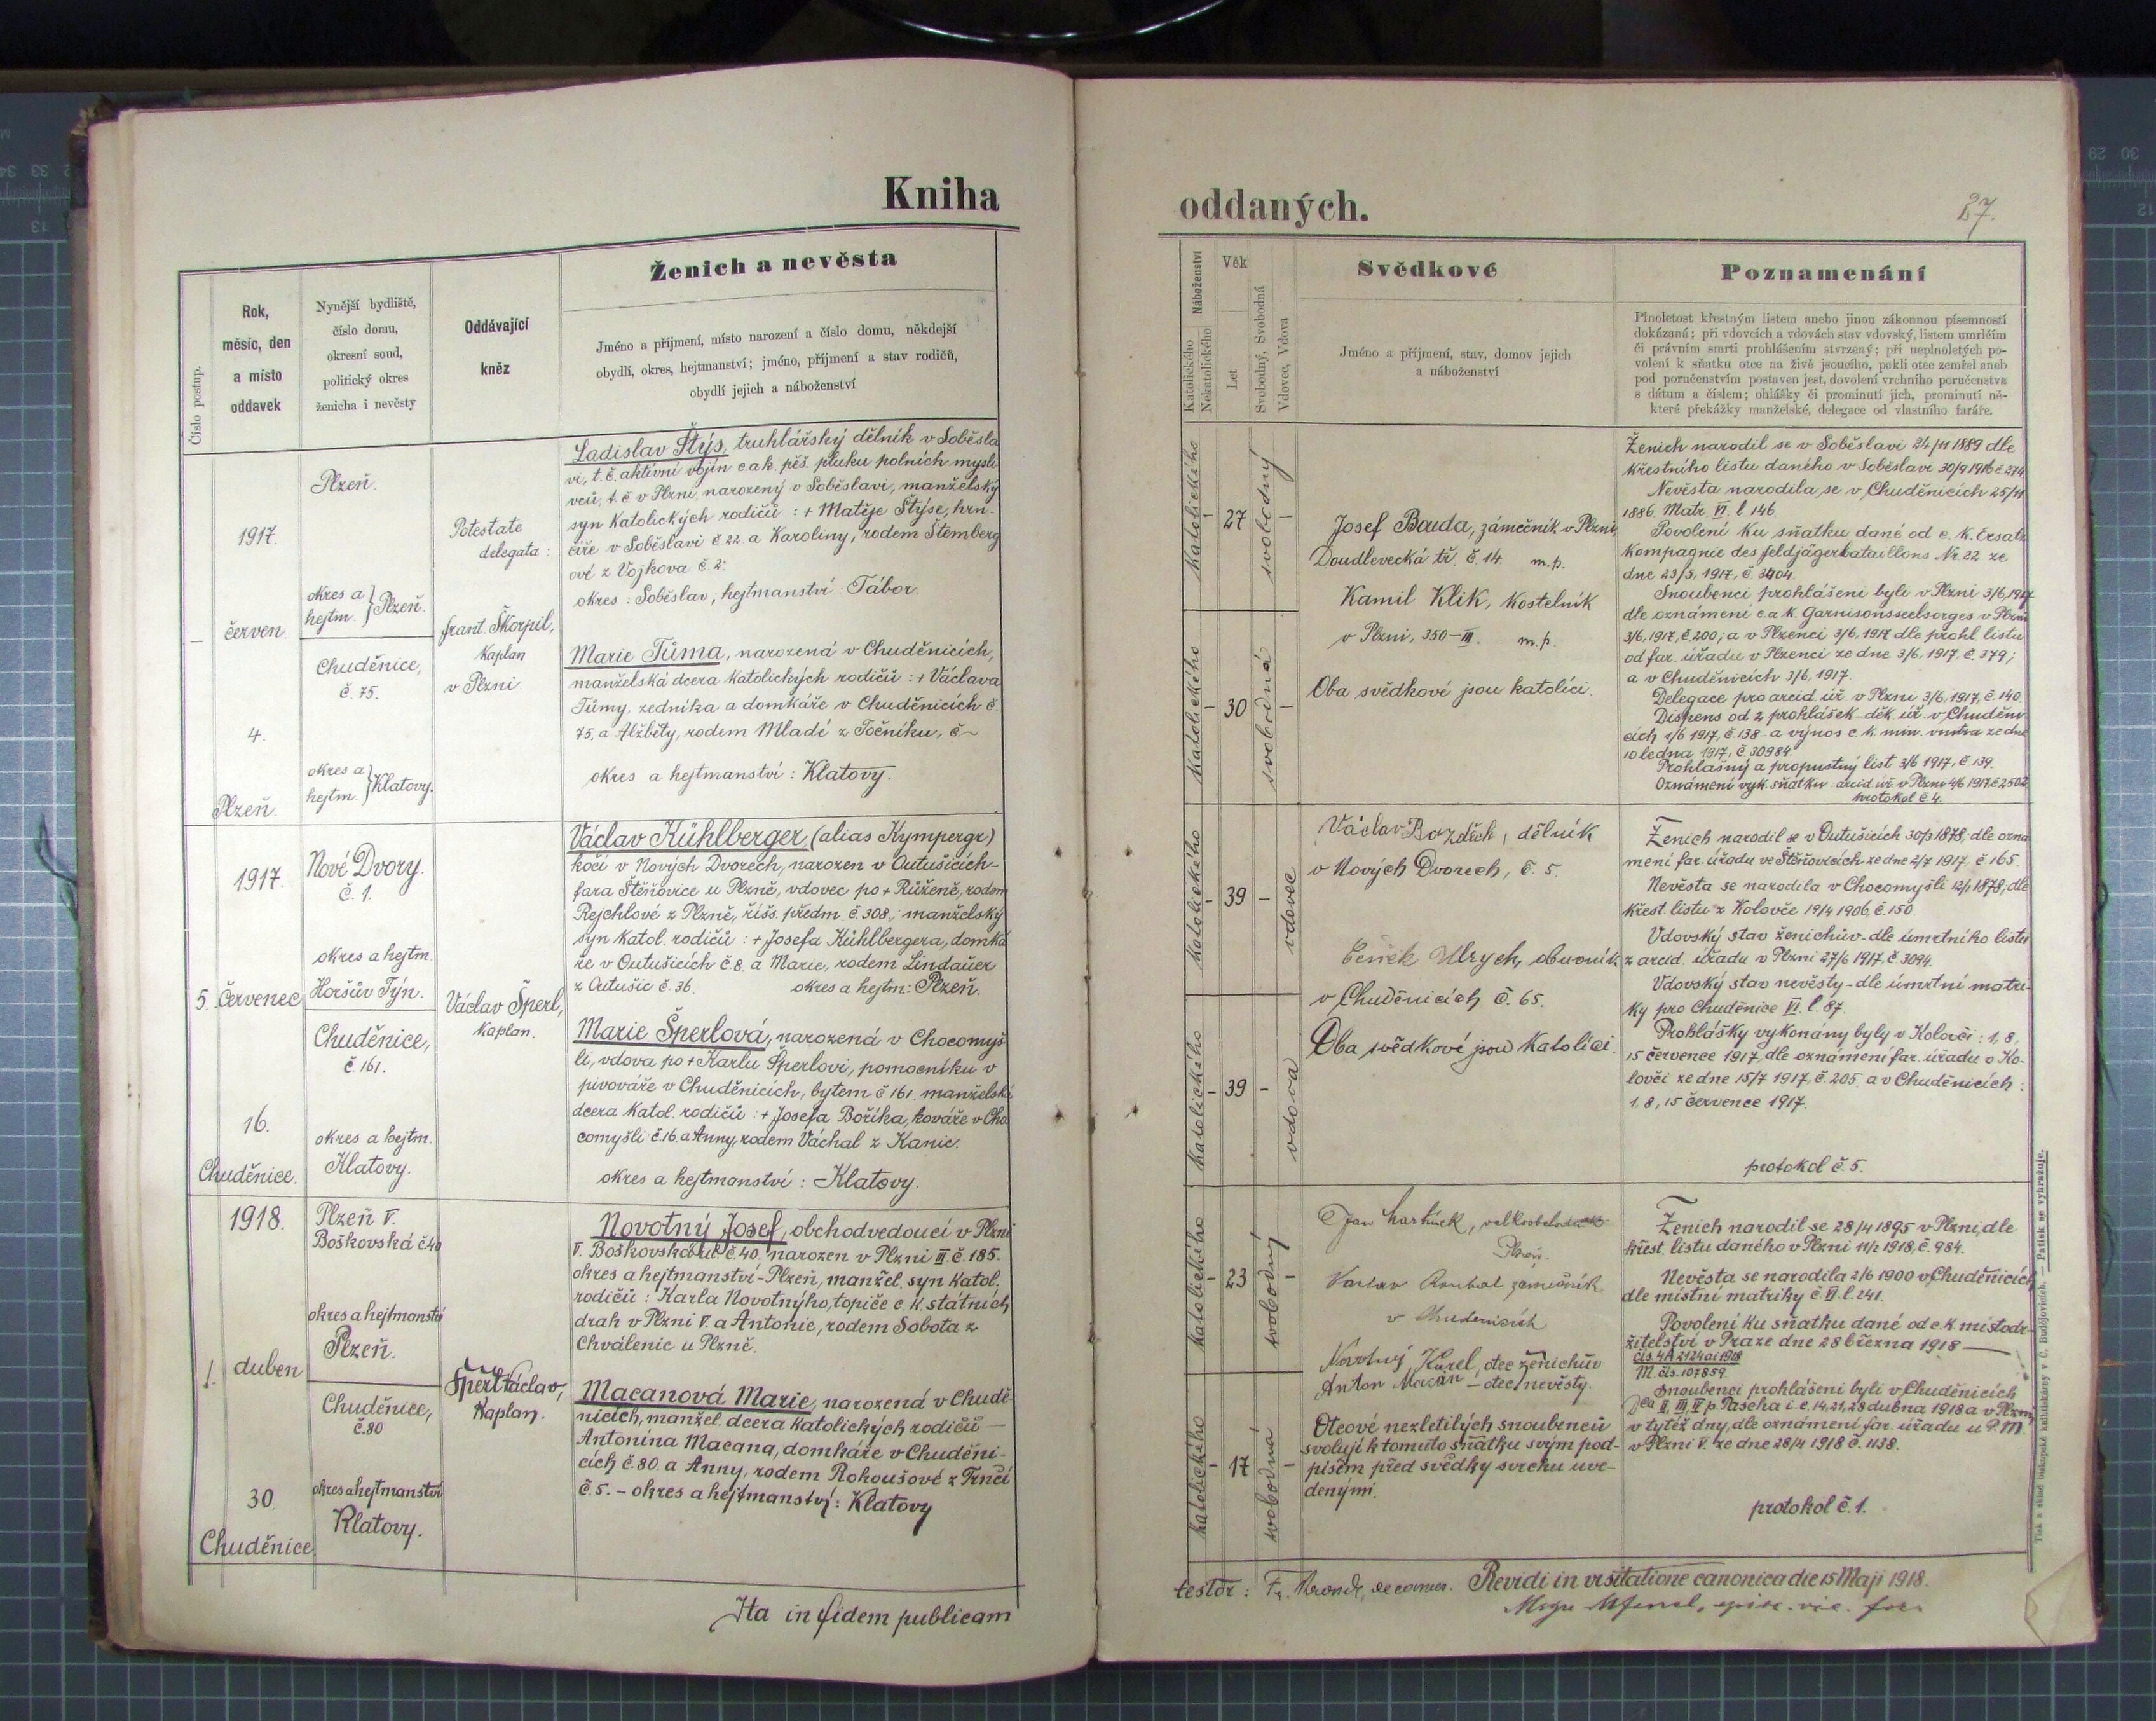 Kniha
Číslo postup.
Rok,
měsíc, den
a místo
oddavek
Nynější bydliště,
číslo domu,
okresní soud,
politický okres
ženicha i nevěsty
Oddávající
kněz
Ženich a nevěsta
Jméno a příjmení, místo narození a číslo domu, někdejší
obydlí, okres, hejtmanství; jméno, příjmení a stav rodičů,
obydlí jejich a náboženství
1917.
červen.
4.
Plzeň.
Plzeň.
okres a
hejtm. } Plzeň.
Chuděnice,
č. 75.
okres a
hejtm. } Klatovy.
Potestate
delegata:
frant. Škorpil,
Kaplan
v Plzni.
Ladislav Štýs, truhlářský dělník v Soběsla
vi, t. č. aktivní vojín c.a k. pěš. pluku polních mysli
vců, t. č v Plzni, narozený v Soběslavi, manželský
syn Katolických rodičů: + Matěje Štýse, hrn-
číře v Soběslavi č 22. a Karoliny, rodem Štemberg
ové z Vojkova č. 2:
okres: Soběslav; hejtmanství: Tábor.
Marie Tůma, narozená v Chuděnicích,
manželská dcera Katolických rodičů: + Václava
Tůmy, zedníka a domkáře v Chuděnicích č.
75, a Alžběty, rodem Mladé z Točníku, č ~
okres a hejtmanství: Klatovy.
5.
1917.
Červenec
16.
Chuděnice.
Nové Dvory.
č. 1.
okres a hejtm.
Horšův Týn.
Chuděnice,
č. 161.
okres a hejtm.
Klatovy.
Václav Šperl,
Kaplan.
Václav Kühlberger, (alias Kympergr)
kočí v Nových Dvorech, narozen v Outušicích-
fara Štěňovice u Plzně, vdovec po + Růženě, rodem
Rejchlové z Plzně, říšs. předm. č. 308.; manželský
syn Katol. rodičů: + Josefa Kühlbergera, domká
ře v Outušicích č. 8. a Marie, rodem Lindauer
z Outušic č. 36. okres a hejtm: Plzeň.
Marie Šperlová, narozená v Chocomyš
li, vdova po + Karlu Šperlovi, pomocníku v
pivováře v Chuděnicích, bytem č 161. manželská
dcera Katol. rodičů: + Josefa Boříka, kováře v Cho
comyšli č. 16. a Anny, rodem Váchal z Kanic.
okres a hejtmanství: Klatovy.
1.
1918.
duben
30.
Chuděnice.
Plzeň V.
Boškovská č 40
okres a hejtmanství
Plzeň.
Chuděnice,
č. 80
okres a hejtmanství
Klatovy.
Šperl Václav,
Kaplan.
Novotný Josef, obchodvedoucí v Plzni
V. Boškovská ul č 40. narozen v Plzni III. č. 185.
okres a hejtmanství - Plzeň, manžel. syn Katol.
rodičů: Karla Novotnýho, topiče c. k. státních
drah v Plzni V. a Antonie, rodem Sobota z
Chválenic u Plzně.
Macanová Marie, narozená v Chudě-
nicích, manžel. dcera Katolických rodičů —
Antonína Macana, domkáře v Chuděni-
cích č. 80. a Anny, rodem Rohoušové z Trnčí
č. 5. - okres a hejtmanství: Klatovy
Ita in fidem publicam
oddaných.
27.
Náboženství
Katolického
Nekatolického
Věk
Let
Svobodný, Svobodná
Vdovec, Vdova
Svědkové
Jméno a příjmení, stav, domov jejich
a náboženství
Poznamenání
Plnoletost křestným listem anebo jinou zákonnou písemností
dokázaná; při vdovcích a vdovách stav vdovský, listem umrlčím
či právním smrti prohlášením stvrzený; při neplnoletých po-
volení k sňatku otce na živě jsoucího, pakli otec zemřel aneb
pod poručenstvím postaven jest, dovolení vrchního poručenstva
s dátum a číslem; ohlášky či prominutí jich, prominutí ně-
které překážky manželské, delegace od vlastního faráře.
Katolického
27
svobodný
Katolického
30
svobodná
Josef Bauda, zámečník v Plzni,
Doudlevecká tř. č. 14. m.p.
Kamil Klik, Kostelník
v Plzni, 350 - III. m.p.
Oba svědkové jsou katolíci.
Ženich narodil se v Soběslavi 24/11 1889 dle
křestního listu daného v Soběslavi 30/9 1916 č 274
Nevěsta narodila se v Chuděnicích 25/11
1886. Matr VI. l. 146.
Povolení ku sňatku dané od c. k. Ersatz
Kompagnie des feldjägerbataillons Nr. 22 ze
dne 23/5, 1917, č. 3404.
Snoubenci prohlášeni byli v Plzni 3/6, 1917
dle oznámení c.a k. Garnisonsseelsorges v Plzni
3/6, 1917, č. 200; a v Plzenci 3/6, 1917 dle prohl. listu
od far. úřadu v Plzenci ze dne 3/6, 1917, č. 379;
a v Chuděnicích 3/6, 1917.
Delegace pro arcid. úř. v Plzni 3/6, 1917, č. 140.
Dispens od 2 prohlášek - děk. úř. v Chuděni
cích 1/6 1917, č 138 - a výnos c. k. min. vnitra ze dne
10 ledna 1917, č 30984
Prohlašný a propustný list 3/6 1917, č 139.
Oznámení vyk. sňatku arcid. úř. v Plzni 4/6 1917. č 2502
protokol č. 4.
Katolického
39
vdovec
Katolického
39
vdova
Václav Bozděch, dělník
v Nových Dvorech, č. 5.
Čeněk Ulrych, obuvník
v Chuděnicích č. 65.
Oba svědkové jsou Katolíci.
Ženich narodil se v Outušicích 30/3 1878, dle ozna
mení far. úřadu ve Štěňovicích ze dne 2/7 1917. č. 165.
Nevěsta se narodila v Chocomyšli 12/1 1878, dle
křest. listu z Kolovče 19/4 1906, č. 150.
Vdovský stav ženichův - dle úmrtního listu
z arcid. úřadu v Plzni 27/6 1917. č. 3094.
Vdovský stav nevěsty - dle úmrtní matri-
ky pro Chuděnice VI. l. 87.
Prohlášky vykonány byly v Kolovči: 1, 8,
15 července 1917, dle oznámení far. úřadu v Ko-
lovči ze dne 15/7 1917, č. 205. a v Chuděnicích:
1, 8, 15 července 1917.
protokol č. 5.
Katolického
23
svobodný
Katolického
17
svobodná
Jan
Plzeň.
Václav Roubal zámečník
v Chuděnicích
Novotný Karel, otec ženichův
Anton Macán - otec nevěsty.
Otcové nezletilých snoubenců
svolují k tomuto sňatku svým pod-
pisem před svědky svrchu uve-
denými.
Ženich narodil se 28/4 1895 v Plzni, dle
křest. listu daného v Plzni 11/2 1918, č. 984.
Nevěsta se narodila 2/6 1900 v Chuděnicích
dle místní matriky č. VI. l. 241.
Povolení ku sňatku dané od c. k. místodr-
žitelství v Praze dne 28 března 1918 —
čís. 4A 2124 ai 1918
M. čís. 107859.
Snoubenci prohlášeni byli v Chuděnicích
Dca II, III, IV p. Pascha i. e. 14, 21, 28 dubna 1918 a v Plzni
v tytéž dny, dle oznámení far. úřadu u P. M.
v Plzni V. ze dne 28/4 1918 č. 1138.
protokol č. 1.
testor: Fr. decanus. Revidi in visitatione canonica die 15 Maji 1918.
Tisk a sklad biskupské knihtiskárny v Č. Budějovicích. — Patisk se vyhražuje.